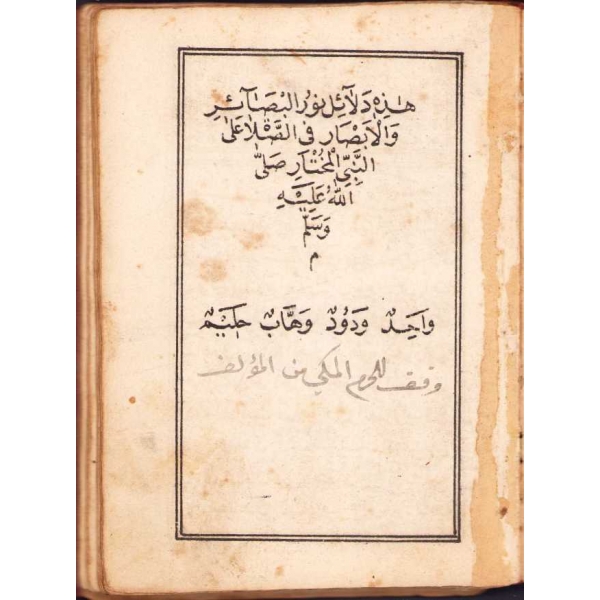 هٰذِهِ دَلَآئِل نُورُ الْبَصَآئِرِ
وَالْاَبْصَارِ فِي الصَّلٰا عَلَى
النَّبِيِّ الْمُخْتَارِ صَلَّى
اللّٰهُ عَلَيْهِ
وَسَلَّمَ
م
وَاحِدٌ وَدُودٌ وَهَّابٌ حَلِيمٌ
وقف للحرم المكي من المؤلف